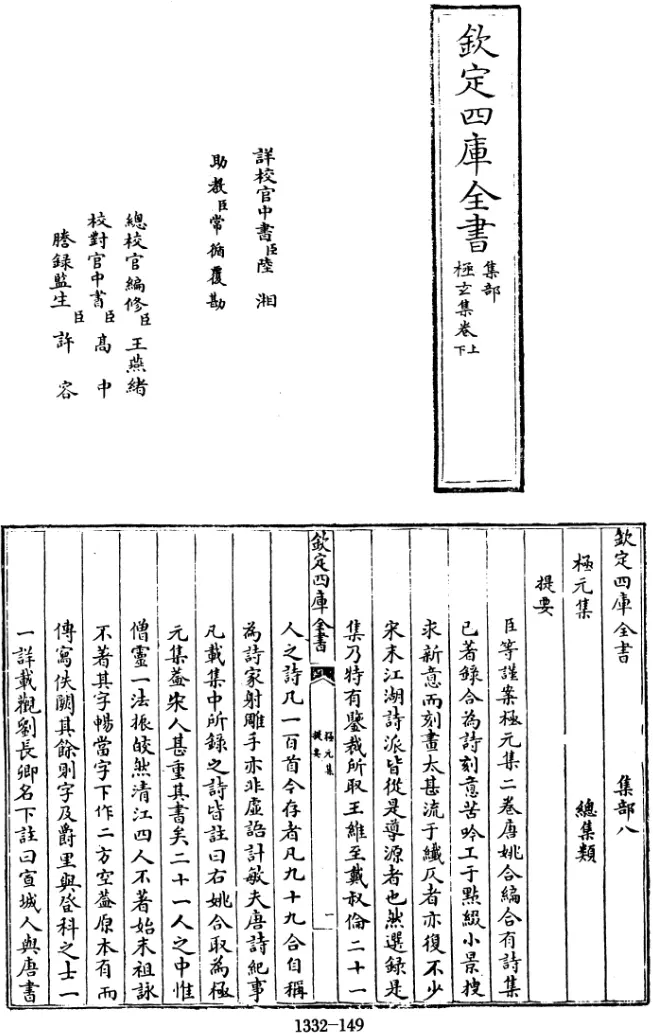 欽定四庫全書
集部
極玄集卷上
下
詳校官中書臣陸湘
助教臣常循覆勘
總校官編修臣王燕緒
校對官中書臣高中
謄錄監生臣許容
欽定四庫全書 集部八
極元集 總集類
提要
臣等謹案極元集二卷唐姚合編合有詩集
已著錄合為詩刻意苦吟工于點綴小景搜
求新意而刻畫太甚流于纖仄者亦復不少
宋末江湖詩派皆從是導源者也然選錄是
集乃特有鑒裁所取王維至戴叔倫二十一
欽定四庫全書 極元集 提要 一
人之詩凡一百首今存者凡九十九合自稱
為詩家射雕手亦非虛語計敏夫唐詩紀事
凡載集中所錄之詩皆註曰右姚合取為極
元集葢宋人甚重其書矣二十一人之中惟
僧靈一法振皎然清江四人不著始末祖詠
不著其字暢當字下作二方空葢原本有而
傳寫佚闕其餘則字及爵里與登科之士一
一詳載觀劉長卿名下註曰宣城人與唐書
1332-149